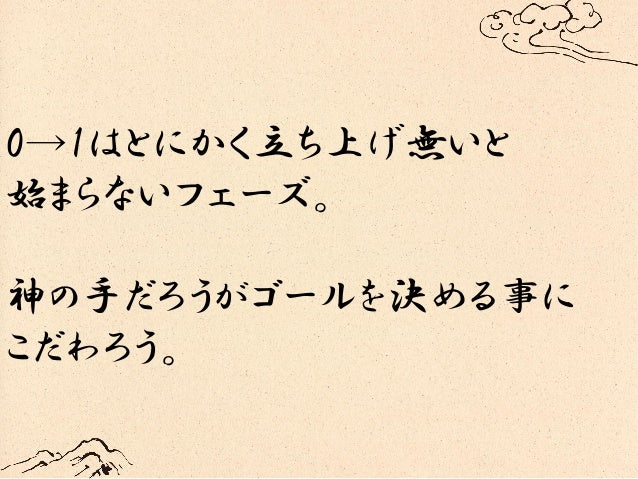 0→1はとにかく立ち上げ無いと
始まらないフェーズ。
神の手だろうがゴールを決める事に
こだわろう。